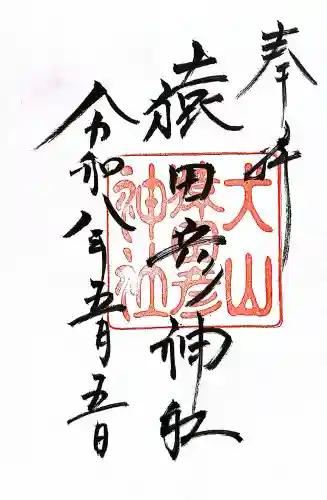 奉拝
猿田彦神社
令和八年五月五日
大山
猿田彦
神社